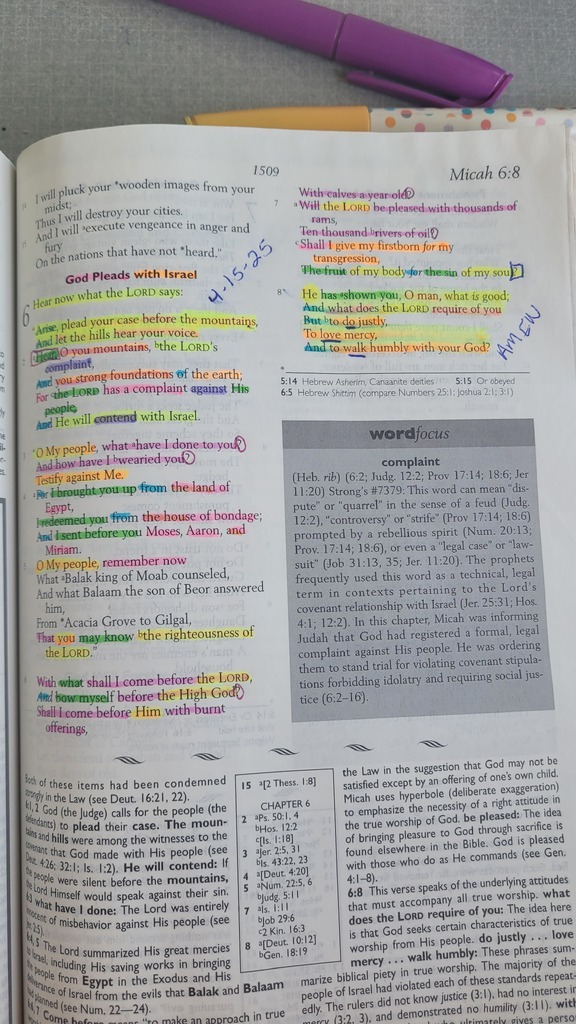 1509
Micah 6:8
14 I will pluck your *wooden images from your
midst;
Thus I will destroy your cities.
15 And I will ᵃexecute vengeance in anger and
fury
On the nations that have not *heard."
4-15-25
God Pleads with Israel
6 Hear now what the LORD says:
"Arise, plead your case before the mountains,
And let the hills hear your voice.
2 ᵃHear, O you mountains, ᵇthe LORD's
complaint,
And you strong foundations of the earth;
For ᶜthe LORD has a complaint against His
people,
And He will contend with Israel.
3 "O My people, what ᵃhave I done to you?
And how have I ᵇwearied you?
Testify against Me.
4 ᵃFor I brought you up from the land of
Egypt,
I redeemed you from the house of bondage;
And I sent before you Moses, Aaron, and
Miriam.
5 O My people, remember now
What ᵃBalak king of Moab counseled,
And what Balaam the son of Beor answered
him,
From *Acacia Grove to Gilgal,
That you may know ᵇthe righteousness of
the LORD."
6 With what shall I come before the LORD,
And bow myself before the High God?
Shall I come before Him with burnt
offerings,
With calves a year old?
7 ᵃWill the LORD be pleased with thousands of
rams,
Ten thousand ᵇrivers of oil?
ᶜShall I give my firstborn for my
transgression,
The fruit of my body for the sin of my soul?
8 He has ᵃshown you, O man, what is good;
And what does the LORD require of you
But ᵇto do justly,
To love mercy,
And to walk humbly with your God?
AMEN
5:14 Hebrew Asherim, Canaanite deities 5:15 Or obeyed
6:5 Hebrew Shittim (compare Numbers 25:1; Joshua 2:1; 3:1)
wordfocus
complaint
(Heb. rib) (6:2; Judg. 12:2; Prov 17:14; 18:6; Jer
11:20) Strong's #7379: This word can mean "dis-
pute" or "quarrel" in the sense of a feud (Judg.
12:2), "controversy" or "strife" (Prov 17:14; 18:6)
prompted by a rebellious spirit (Num. 20:13;
Prov. 17:14; 18:6), or even a "legal case" or "law-
suit" (Job 31:13, 35; Jer. 11:20). The prophets
frequently used this word as a technical, legal
term in contexts pertaining to the Lord's
covenant relationship with Israel (Jer. 25:31; Hos.
4:1; 12:2). In this chapter, Micah was informing
Judah that God had registered a formal, legal
complaint against His people. He was ordering
them to stand trial for violating covenant stipula-
tions forbidding idolatry and requiring social jus-
tice (6:2–16).
Both of these items had been condemned
strongly in the Law (see Deut. 16:21, 22).
6:1, 2 God (the Judge) calls for people (the
defendants) to plead their case. The moun-
tains and hills were among the witnesses to the
covenant that God made with His people (see
Deut. 4:26; 32:1; Is. 1:2). He will contend: If
the people were silent before the mountains,
the Lord Himself would speak against their sin.
6:3 what have I done: The Lord was entirely
innocent of misbehavior against His people (see
Jer. 2:5).
6:4, 5 The Lord summarized His great mercies
to Israel, including His saving works in bringing
the people from Egypt in the Exodus and His
deliverance of Israel from the evils that Balak and Balaam
had planned (see Num. 22—24).
6:6, 7 Come before means "to make an approach in true
15 ᵃ[2 Thess. 1:8]
CHAPTER 6
2 ᵃPs. 50:1, 4
ᵇHos. 12:2
ᶜ[Is. 1:18]
3 ᵃJer. 2:5, 31
ᵇIs. 43:22, 23
4 ᵃ[Deut. 4:20]
5 ᵃNum. 22:5, 6
ᵇJudg. 5:11
7 ᵃIs. 1:11
ᵇJob 29:6
ᶜ2 Kin. 16:3
8 ᵃ[Deut. 10:12]
ᵇGen. 18:19
the Law in the suggestion that God may not be
satisfied except by an offering of one's own child.
Micah uses hyperbole (deliberate exaggeration)
to emphasize the necessity of a right attitude in
the true worship of God. be pleased: The idea
of bringing pleasure to God through sacrifice is
found elsewhere in the Bible. God is pleased
with those who do as He commands (see Gen.
4:1–8).
6:8 This verse speaks of the underlying attitudes
that must accompany all true worship. what
does the LORD require of you: The idea here
is that God seeks certain characteristics of true
worship from His people. do justly . . . love
mercy . . . walk humbly: These phrases sum-
marize biblical piety in true worship. The majority of the
people of Israel had violated each of these standards repeat-
edly. The rulers did not know justice (3:1), had no interest in
mercy (3:2, 3), and demonstrated no humility (3:11). with